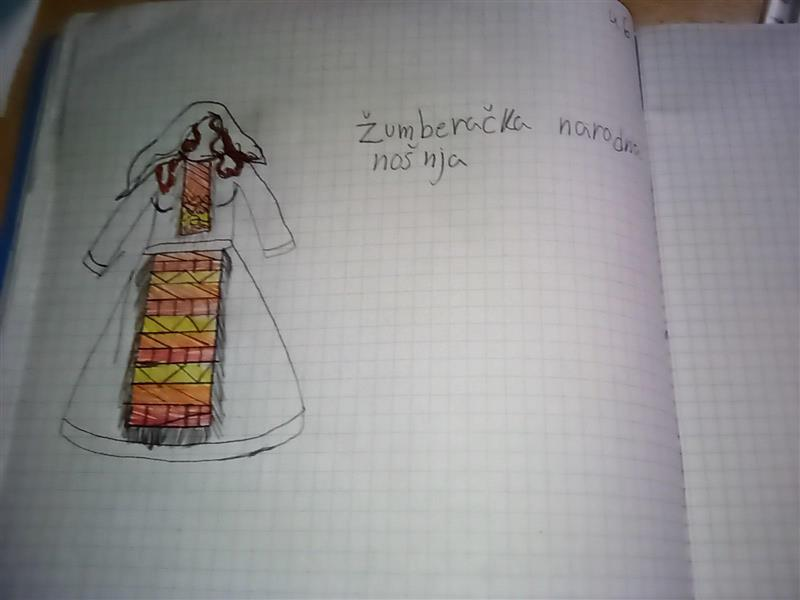 Žumberačka narodna
nošnja